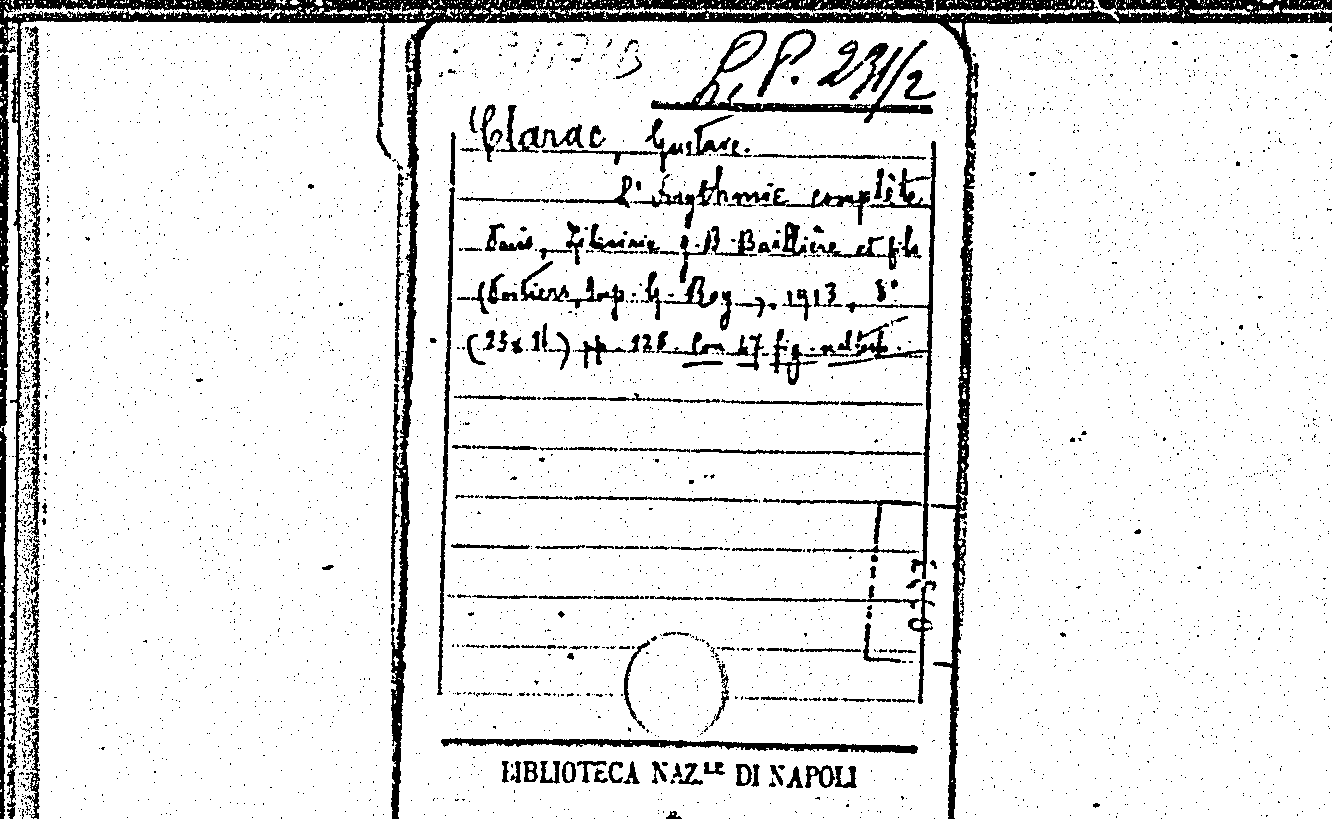 P. 231/2
Clarac, Gustave.
L' Arythmie complète
Paris, Librairie J. B. Baillière et fils
(Poitiers, Imp. G. Roy), 1913, 8°
(25x16) pp. 128. Con 47 fig. nel testo.
BIBLIOTECA NAZ.LE DI NAPOLI